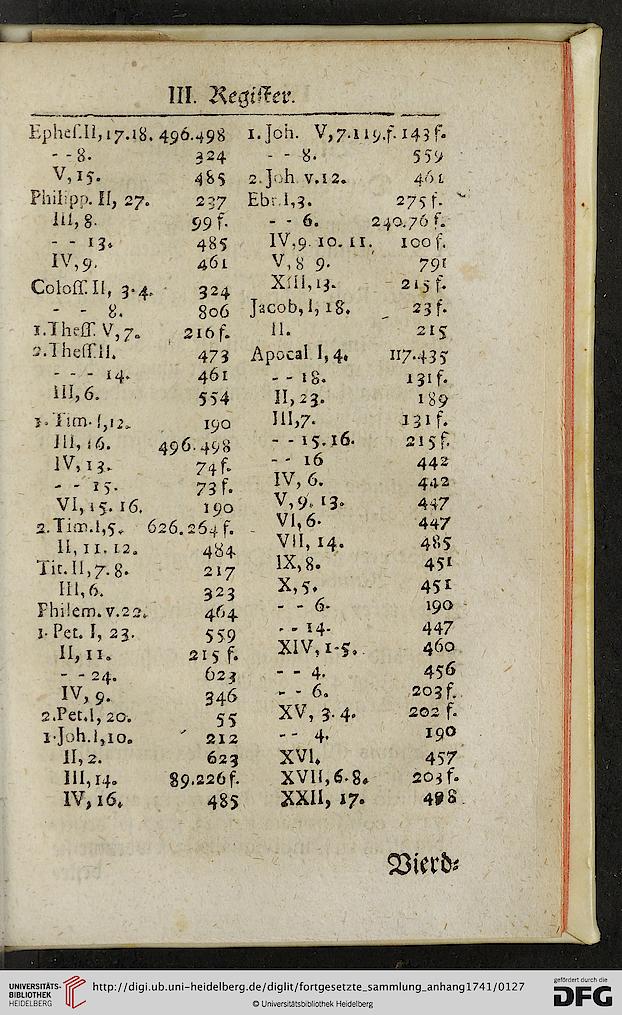 III. Register.
Ephes.II,17.18. 496.498
- - 8. 324
V,15. 485
Philipp. II, 27. 237
III, 8. 99 f.
- - 13. 485
IV,9. 461
Coloss. II, 3.4. 324
- - 8. 806
1.Thess. V,7. 216f.
2.Thess.II. 473
- - - 14. 461
III,6. 554
1.Tim.I,12. 190
III, 16. 496.498
IV,13. 74f.
- - 15. 73f.
VI,15.16. 190
2.Tim.I,5. 626.264f.
II, 11.12. 484
Tit.II,7.8. 217
III,6. 323
Philem.v.22. 464
1.Pet. I, 23. 559
II,11. 215 f.
- - 24. 623
IV, 9. 346
2.Pet.I,20. 55
1.Joh.I,10. 212
II,2. 623
III,14. 89.226f.
IV,16. 485
1.Joh. V,7.119.f.143f.
- - 8. 559
2.Joh.v.12. 461
Ebr.I,3. 275f.
- - 6. 240.76f.
IV,9.10.11. 100f.
V,8 9. 791
XIII,13. 215f.
Jacob,I,18. 23f.
II. 215
Apocal.I,4. 117.435
- - 18. 131f.
II,23. 189
III,7. 131f.
- - 15.16. 215f.
- - 16 442
IV, 6. 442
V,9.13. 447
VI,6. 447
VII, 14. 485
IX,8. 451
X,5. 451
- - 6. 190
- - 14. 447
XIV,1-5. 460
- - 4. 456
- - 6. 203f.
XV, 3.4. 202 f.
- - 4. 190
XVI. 457
XVII,6.8. 203f.
XXII, 17. 498
Vierd-
UNIVERSITÄTS-
BIBLIOTHEK
HEIDELBERG
http://digi.ub.uni-heidelberg.de/diglit/fortgesetzte_sammlung_anhang1741/0127
© Universitätsbibliothek Heidelberg
gefördert durch die
DFG